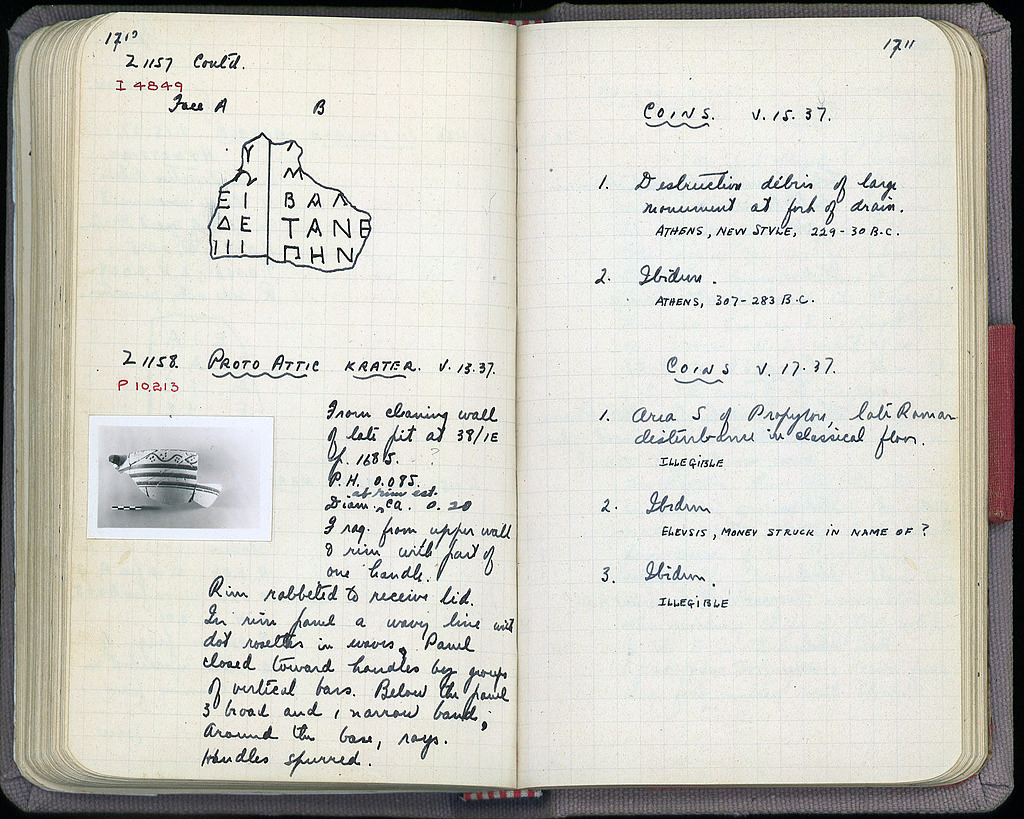 1710
Z 1157 Cont'd.
I 4849
Face A B
Υ
Ω Μ
ΕΙ ΒΑΛ
ΔΕ ΤΑΝΕ
ΠΗΝ
Z 1158. PROTO ATTIC KRATER. V. 13.37.
P 10,213
From cleaning wall
of late pit at 38/ΙΕ
p. 1685. ?
P.H. 0.085.
at rim est.
Diam. ca. 0.20
Frag. from upper wall
& rim with part of
one handle.
Rim rabbeted to receive lid.
In rim panel a wavy line with
dot rosettes in waves. Panel
closed toward handles by groups
of vertical bars. Below the panel
3 broad and 1 narrow bands;
around the base, rays.
Handles spurred.
1711
COINS. V. 15. 37.
1. Destruction débris of large
monument at fork of drain.
ATHENS, NEW STYLE, 229-30 B.C.
2. Ibidum.
ATHENS, 307-283 B.C.
COINS V. 17.37.
1. Area S of Propylon, late Roman
disturbance in classical floor.
ILLEGIBLE
2. Ibidum
ELEUSIS, MONEY STRUCK IN NAME OF ?
3. Ibidum.
ILLEGIBLE